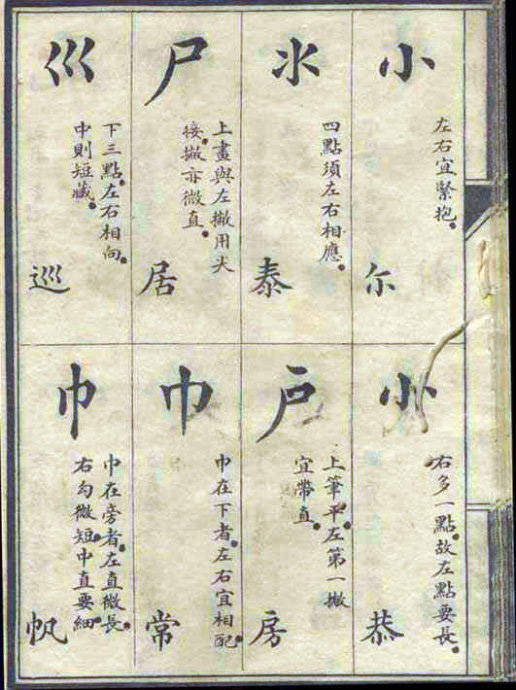 小
左右宜緊抱。
尔
氺
四點須左右相應。
泰
尸
上畫與左撇用尖
接。撇亦微直。
居
巛
下三點。左右相向。
中則短藏。
巡
㣺
右多一點。故左點要長。
恭
戶
上筆平。左第一撇
宜帶直。
房
巾
巾在下者。左右宜相配。
常
巾
巾在旁者。左直微長。
右勾微短。中直要細。
帆